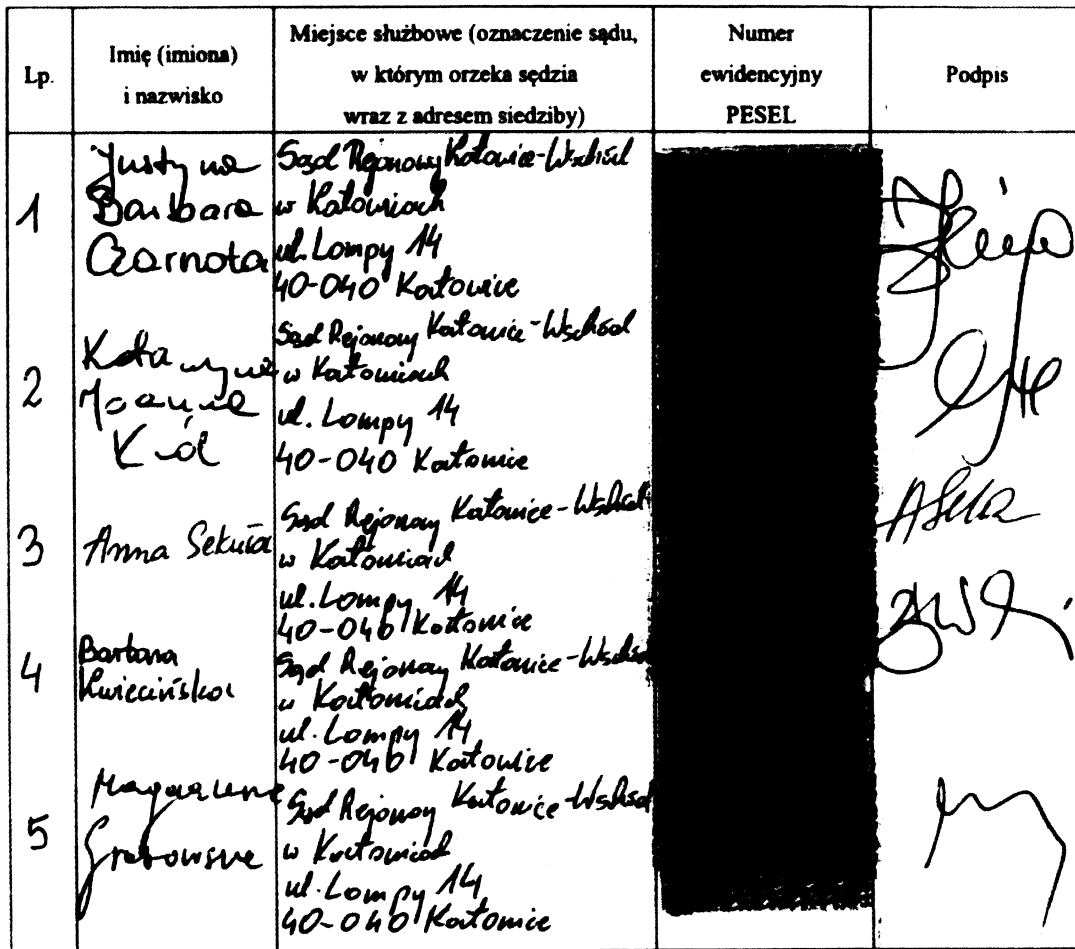 Lp.
Imię (imiona)
i nazwisko
Miejsce służbowe (oznaczenie sądu,
w którym orzeka sędzia
wraz z adresem siedziby)
Numer
ewidencyjny
PESEL
Podpis
1
Justyna
Barbara
Czarnota
Sąd Rejonowy Katowice-Wschód
w Katowicach
ul. Lompy 14
40-040 Katowice
2
Katarzyna
Joanna
Król
Sąd Rejonowy Katowice-Wschód
w Katowicach
ul. Lompy 14
40-040 Katowice
3
Anna Sekuła
Sąd Rejonowy Katowice-Wschód
w Katowicach
ul. Lompy 14
40-040 Katowice
4
Barbara
Kwiecińska
Sąd Rejonowy Katowice-Wschód
w Katowicach
ul. Lompy 14
40-040 Katowice
5
Magdalena
Grabowska
Sąd Rejonowy Katowice-Wschód
w Katowicach
ul. Lompy 14
40-040 Katowice